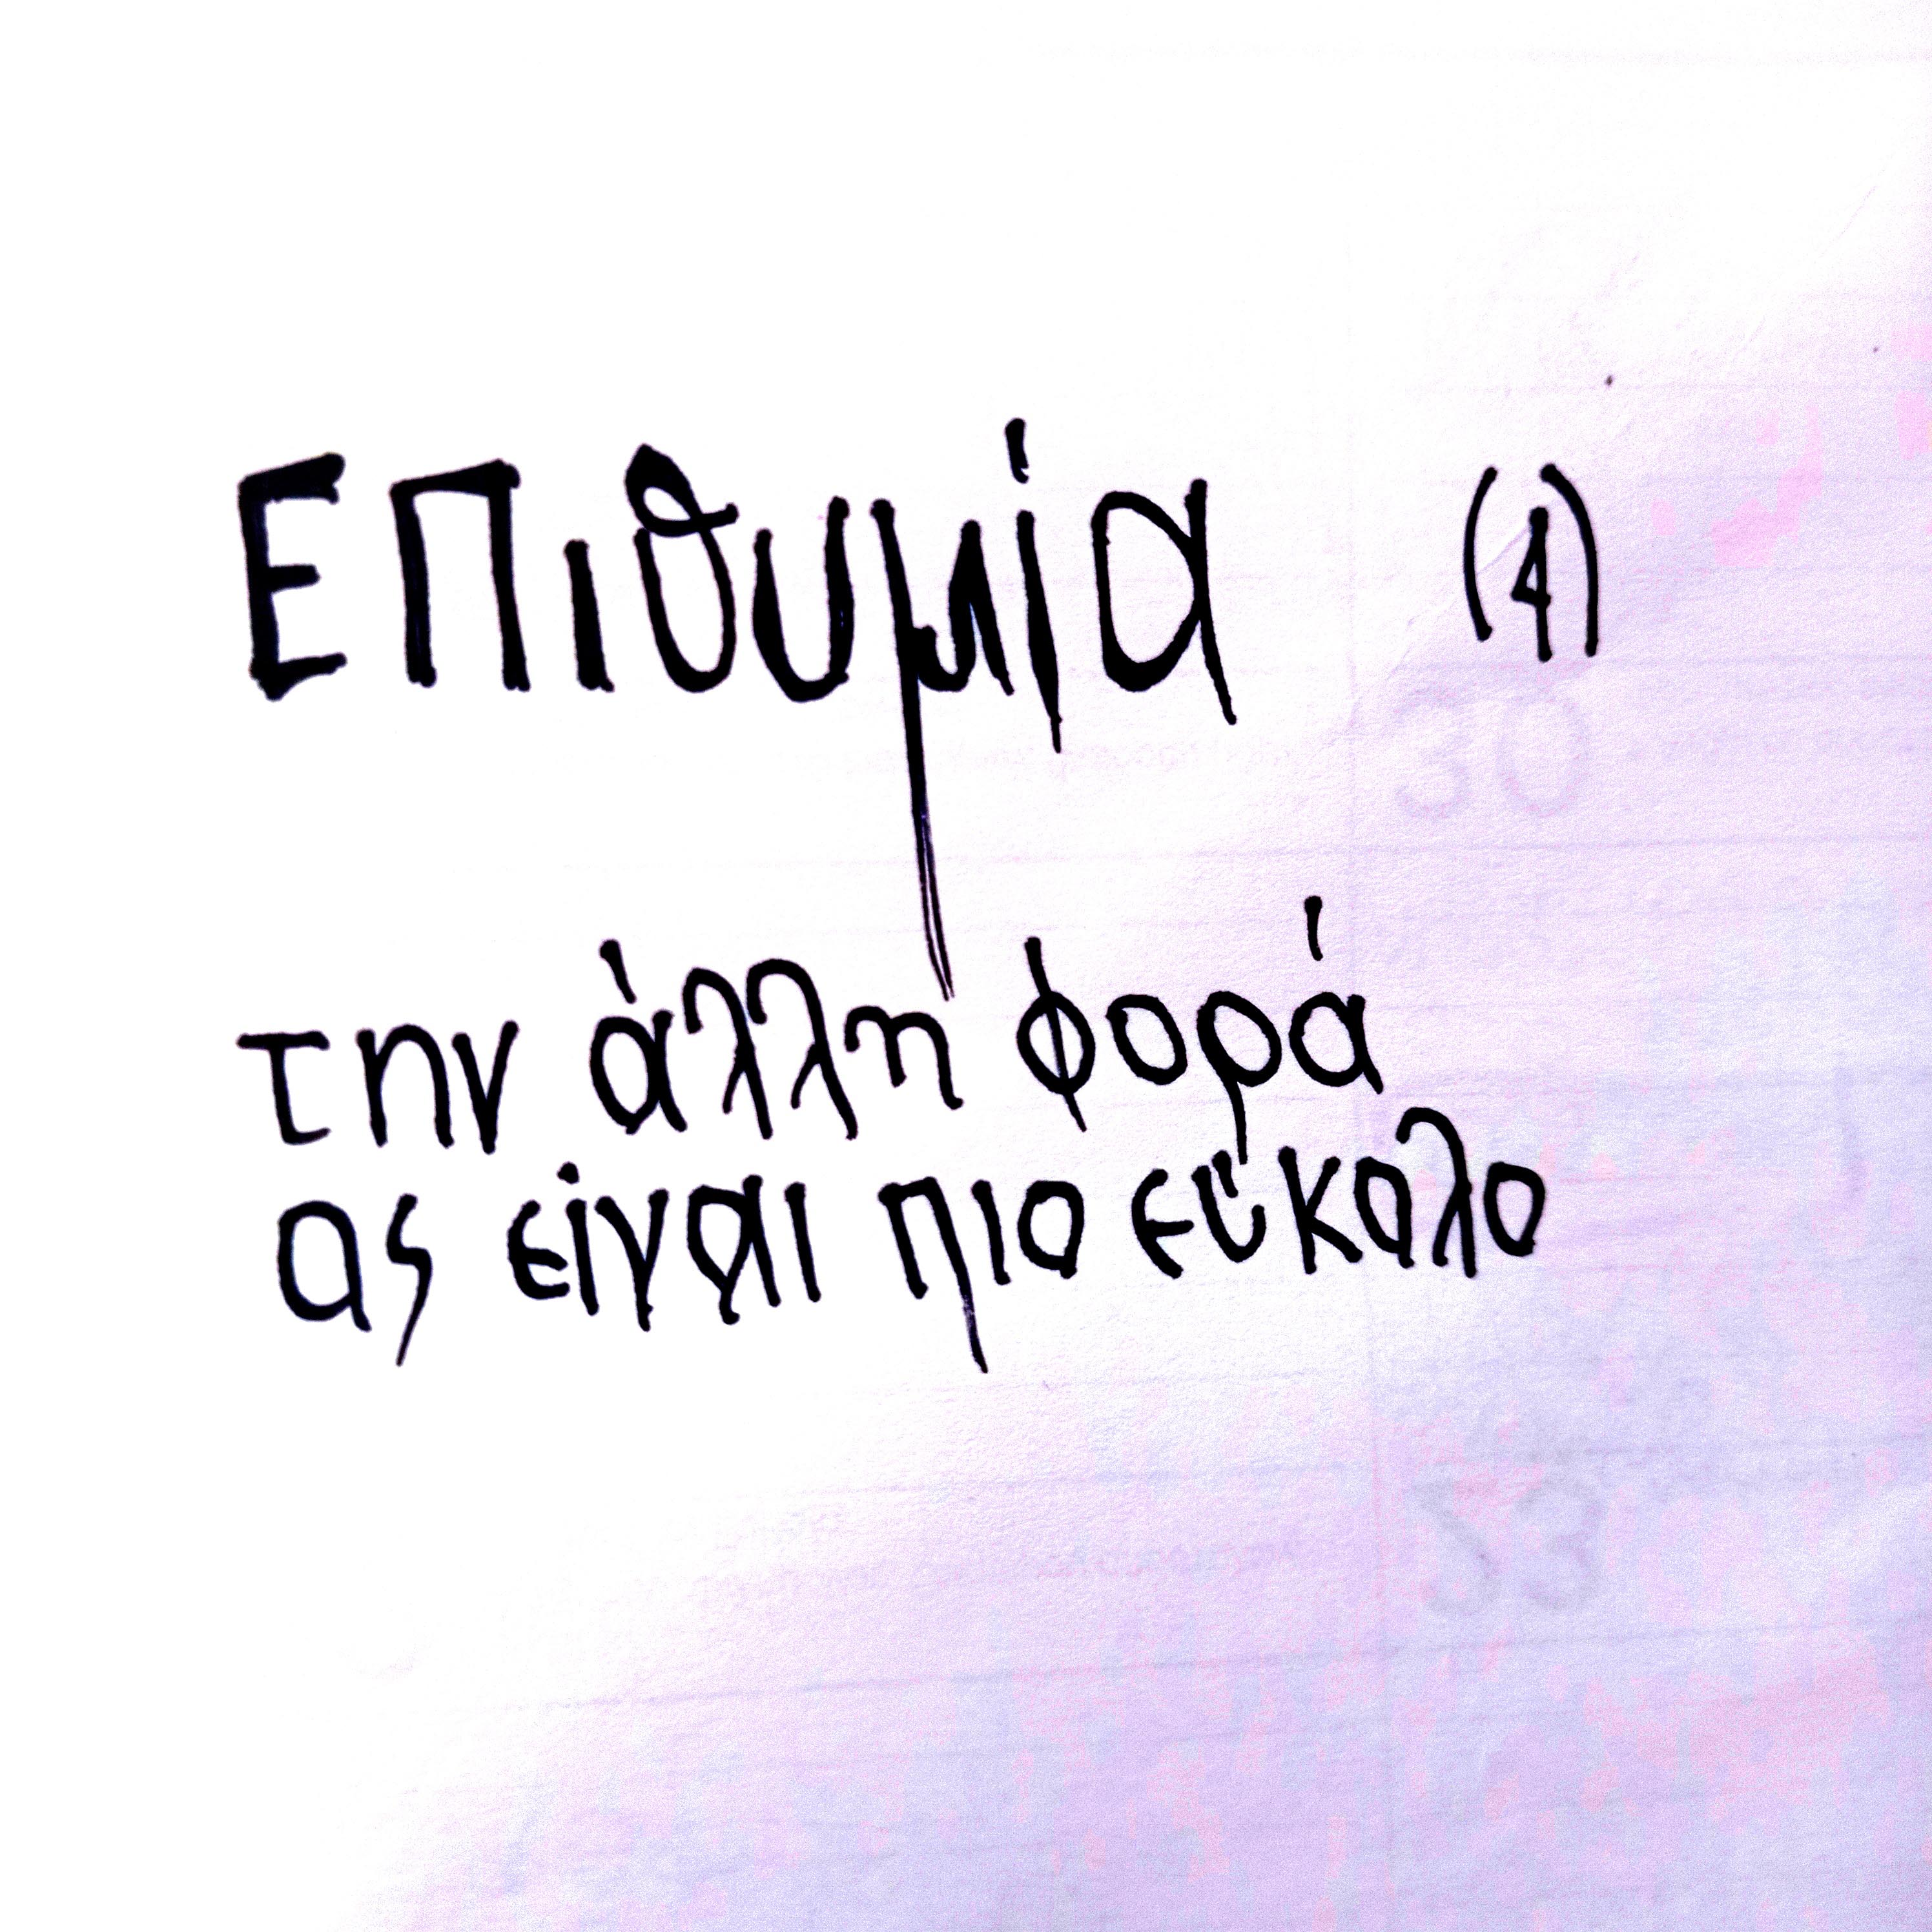 Επιθυμία (4)
την άλλη φορά
ας είναι πιο εύκολο